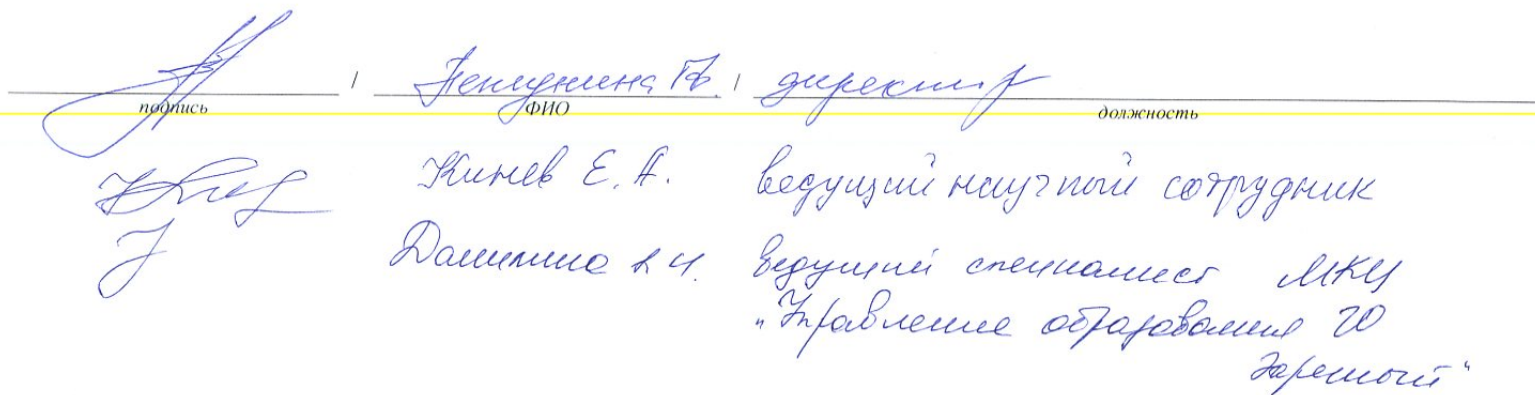 / Г.В. / директор
подпись ФИО должность
Кинев Е.А. ведущий научный сотрудник
ведущий специалист МКУ
"Управление образования ГО
Заречный"